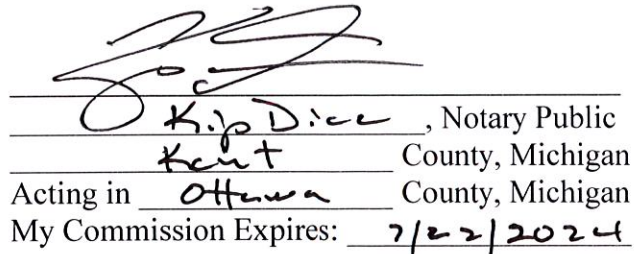 Kip Dice, Notary Public
Kent County, Michigan
Acting in Ottawa County, Michigan
My Commission Expires: 7/22/2024